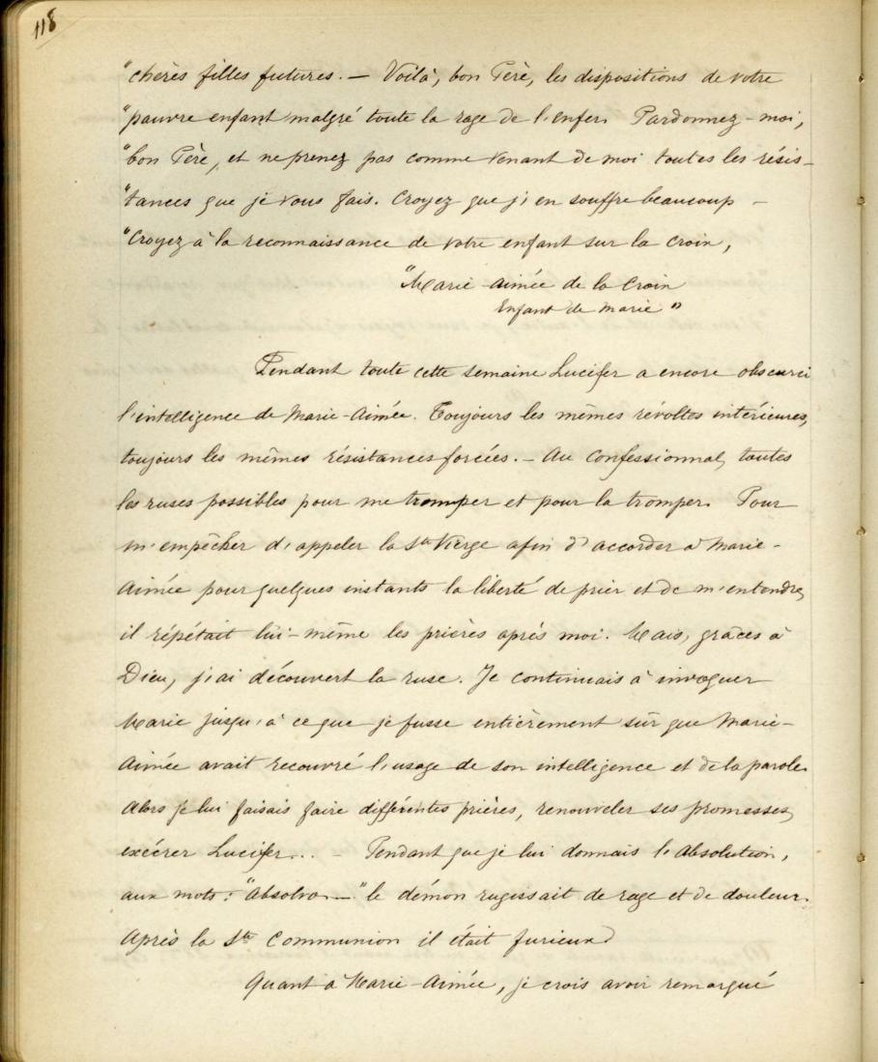 118
"chères filles futures. — Voilà, bon Père, les dispositions de votre
"pauvre enfant malgré toute la rage de l'enfer. Pardonnez-moi,
"bon Père, et ne prenez pas comme venant de moi toutes les résis-
"tances que je vous fais. Croyez que j'en souffre beaucoup —
"Croyez à la reconnaissance de votre enfant sur la Croix,
"Marie-Aimée de la Croix
Enfant de Marie"
Pendant toute cette semaine Lucifer a encore obscurci
l'intelligence de Marie-Aimée. Toujours les mêmes révoltes intérieures,
toujours les mêmes résistances forcées. — Au Confessionnal, toutes
les ruses possibles pour me tromper et pour la tromper. Pour
m'empêcher d'appeler la Ste Vierge afin d'accorder à Marie-
Aimée pour quelques instants la liberté de prier et de m'entendre,
il répétait lui-même les prières après moi. Mais, grâces à
Dieu, j'ai découvert la ruse. Je continuais à invoquer
Marie jusqu'à ce que je fusse entièrement sûr que Marie-
Aimée avait recouvré l'usage de son intelligence et de la parole.
Alors je lui faisais faire différentes prières, renouveler ses promesses,
exécrer Lucifer... — Pendant que je lui donnais l'Absolution,
aux mots: "Absolvo —" le démon rugissait de rage et de douleur.
Après la Ste Communion il était furieux
Quant à Marie-Aimée, je crois avoir remarqué